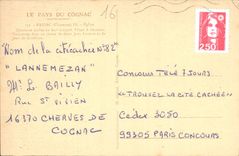 LE PAYS DU COGNAC
Nom de la cité cachée N°82
"LANNEMEZAN"
L. BAILLY
Rue St Vivien
16370 CHERVES DE
COGNAC
2,50
CONCOURS TÉLÉ 7 JOURS
"TROUVEZ LA CITÉ CACHÉE"
Cédex 3050
99305 PARIS CONCOURS